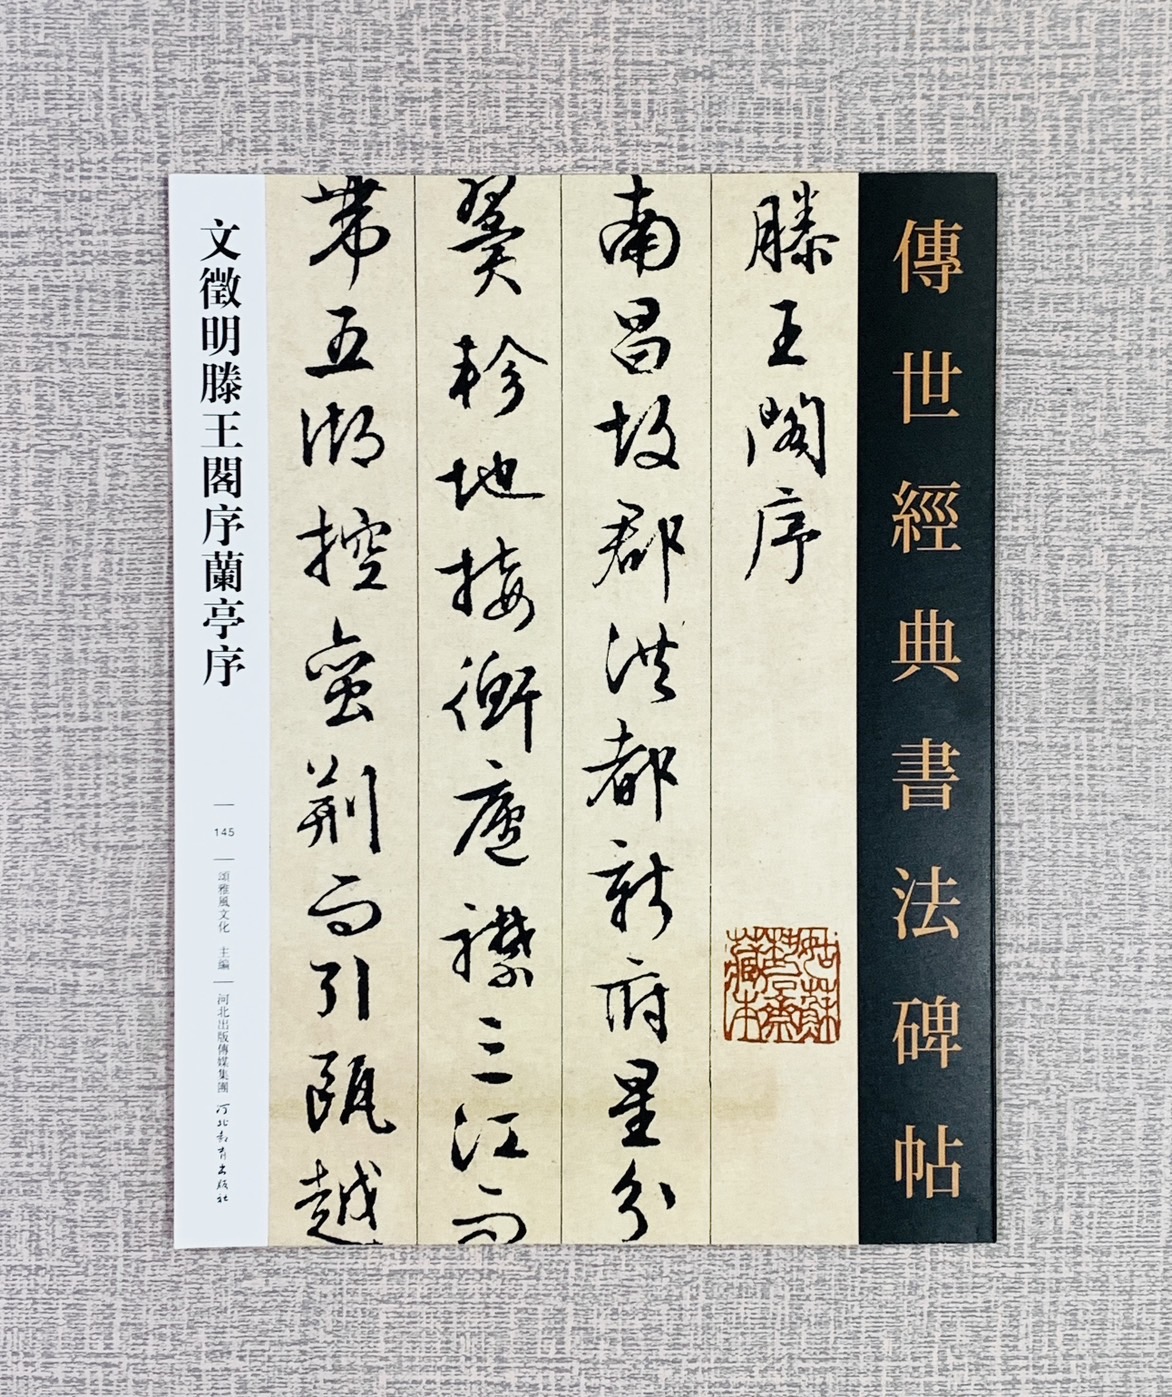 傳世經典書法碑帖
滕王閣序
南昌故郡洪都新府星分
翼軫地接衡廬襟三江而
帶五湖控蠻荆而引甌越
文徵明滕王閣序蘭亭序
145
頌雅風文化 主編
河北出版傳媒集團
河北教育出版社